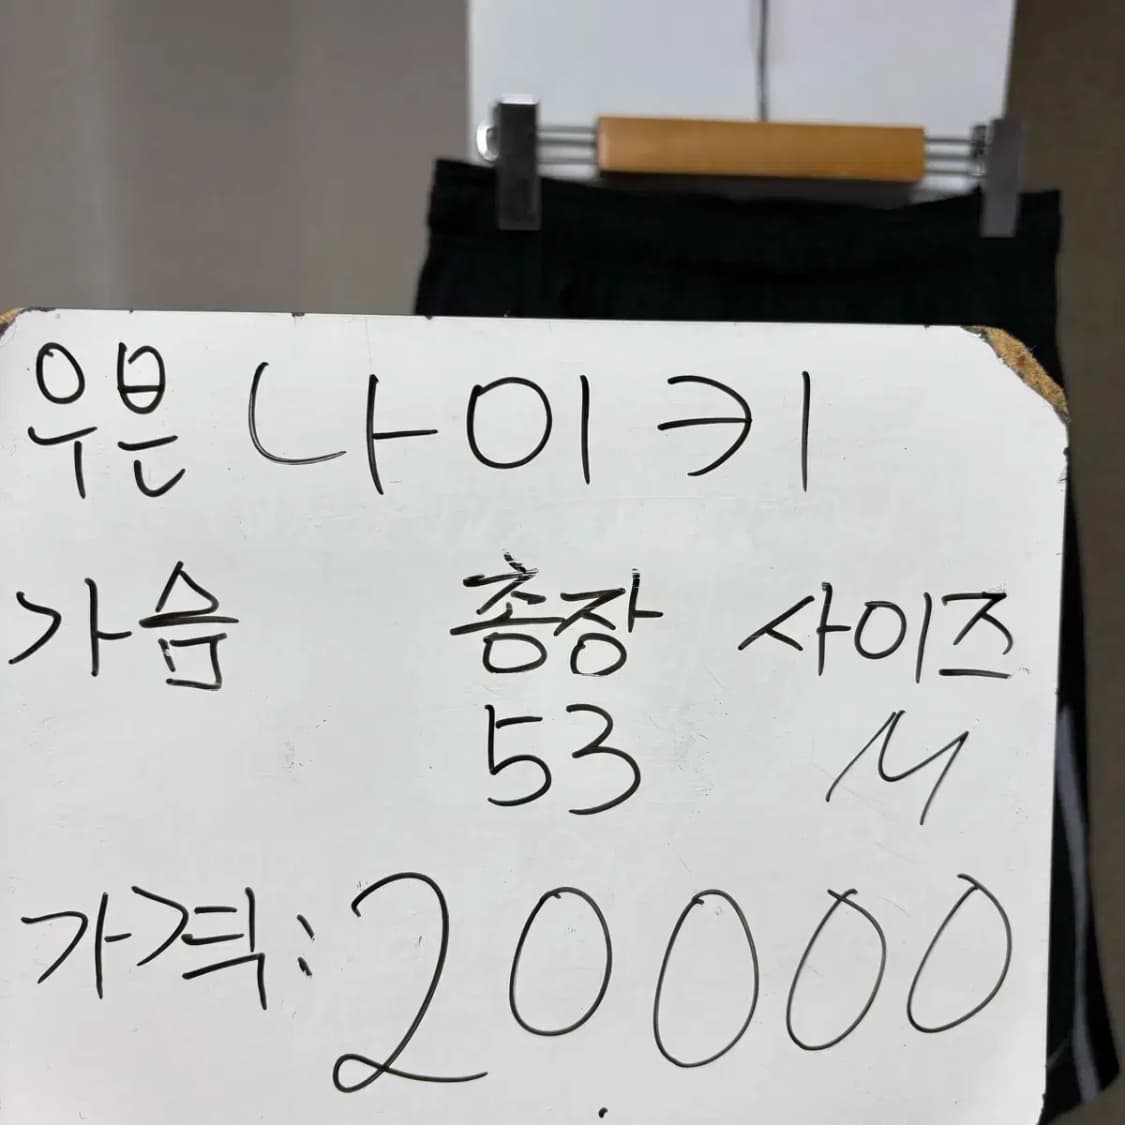 우븐 나이키
가슴 총장 사이즈
53 M
가격: 20000